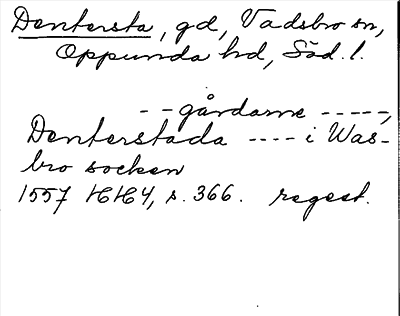 Dentersta, gd, Vadsbro sn,
Oppunda hd, Söd. l.
- - gårdarne - - - - -,
Denterstada - - - - i Was-
bro socken
1557 HH4, s. 366. regest.